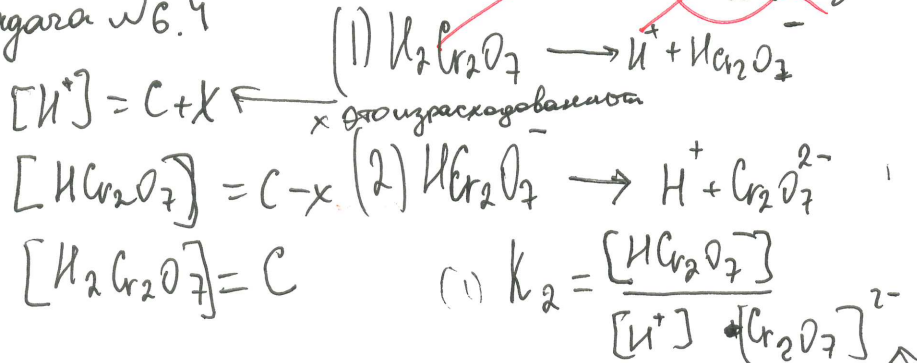 задача №6.4
(1) H₂Cr₂O₇ → H⁺ + HCr₂O₇⁻
[H⁺] = C+X ← x это израсходованный
[HCr₂O₇⁻] = C-x (2) HCr₂O₇⁻ → H⁺ + Cr₂O₇²⁻
[H₂Cr₂O₇] = C
(1) K₂ = [HCr₂O₇⁻] / [H⁺] · [Cr₂O₇]²⁻